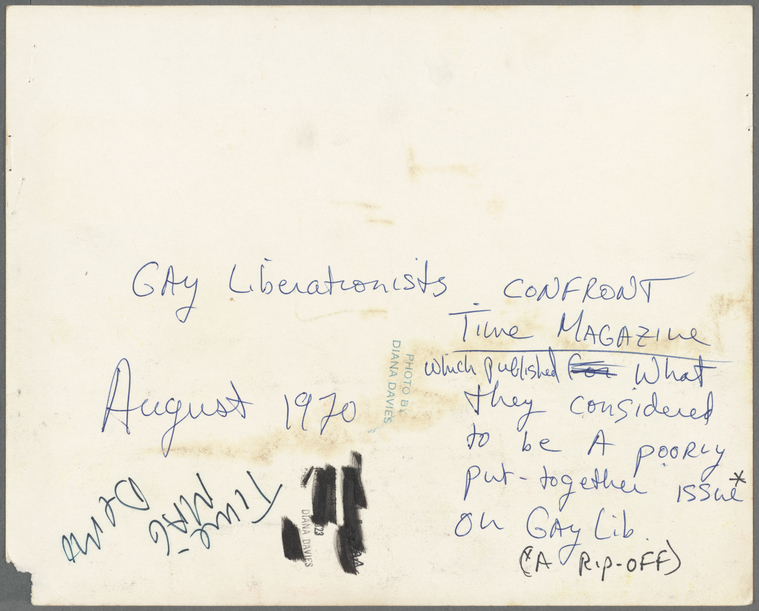 GAy Liberationists CONFRONT
Time MAGAZine
which published What
they considered
to be A poorly
put-together issue*
On GAy Lib.
(*A Rip-OFF)
August 1970
PHOTO BY
DIANA DAVIES
TIME
MAG
Demo
DIANA DAVIES